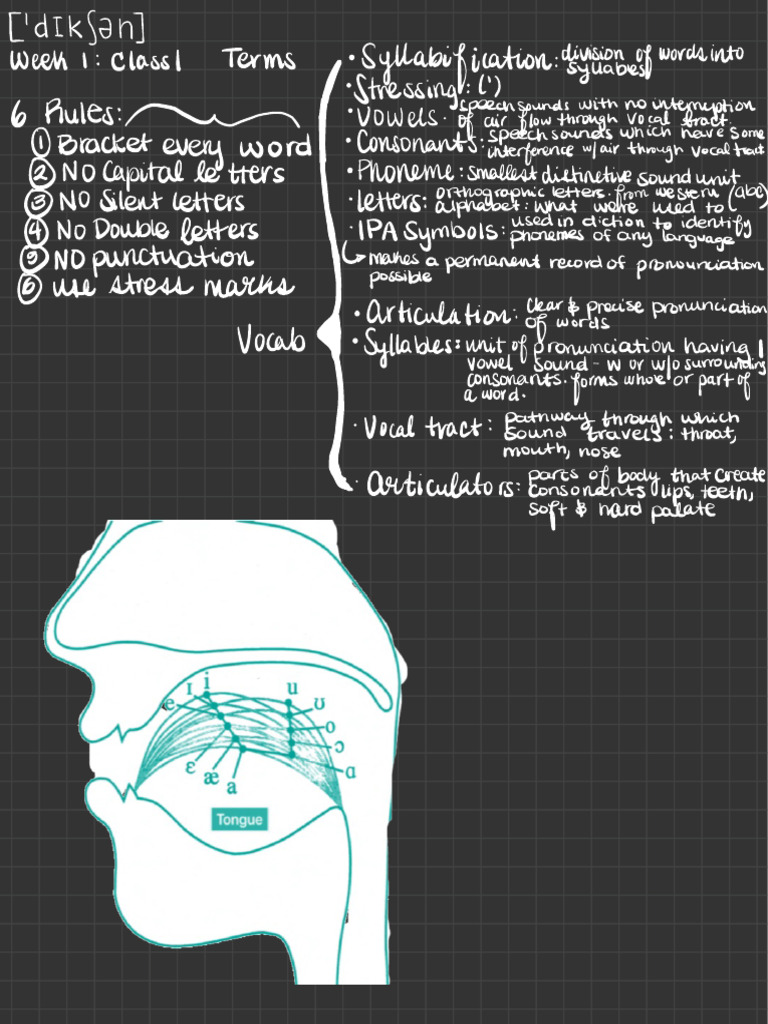 [ˈdɪkʃən]
Week 1: Class 1 Terms
6 Rules:
① Bracket every word
② NO Capital letters
③ NO Silent letters
④ No Double letters
⑤ NO punctuation
⑥ use stress marks
Vocab
· Syllabification: division of words into
syllables
· Stressing: (')
· Vowels. speech sounds with no interruption
of air flow through vocal tract.
· Consonants: speech sounds which have some
interference w/air through vocal tract
· Phoneme: smallest distinctive sound unit
· letters: orthographic letters. from western (abc)
alphabet: what we're used to
· IPA Symbols: used in diction to identify
phonemes of any language
↳ makes a permanent record of pronounciation
possible
· Articulation: clear & precise pronunciation
of words
· Syllables: unit of pronunciation having 1
vowel sound - w or w/o surrounding
consonants. forms whole or part of
a word.
· Vocal tract: pathway through which
sound travels: throat,
mouth, nose
· Articulators: parts of body that create
consonants lips, teeth,
soft & hard palate
ɪ i u
e ʊ
o
ɔ
ɛ æ a ɑ
Tongue